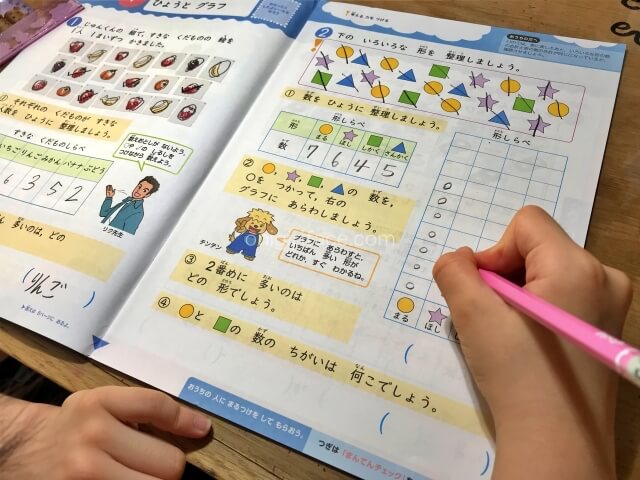 ひょうと グラフ
1 じゅんくんの 組で、すきな くだものの 絵を
1人 1まいずつ かきました。
① それぞれの くだものが すきな
人数を ひょうに 整理しましょう。
すきな くだものしらべ
いちご りんご みかん バナナ ぶどう
6 3 5 2
リク先生
多いのは どの
(りんご)
2 下の いろいろな 形を 整理しましょう。
おうちの方へ
① 数を ひょうに 整理しましょう。
形しらべ
形 まる ほし しかく さんかく
数 7 6 4 5
② の 数を、
○を つかって、右の
グラフに あらわしましょう。
タンタン
グラフに あらわすと、
いちばん 多い 形が
どれか、すぐ わかるね。
③ 2番めに 多いのは
どの 形でしょう。
④ と の 数の ちがいは 何こでしょう。
形しらべ
まる ほし
おうちの 人に まるつけを して もらおう。
つぎは「まんてんチェック」